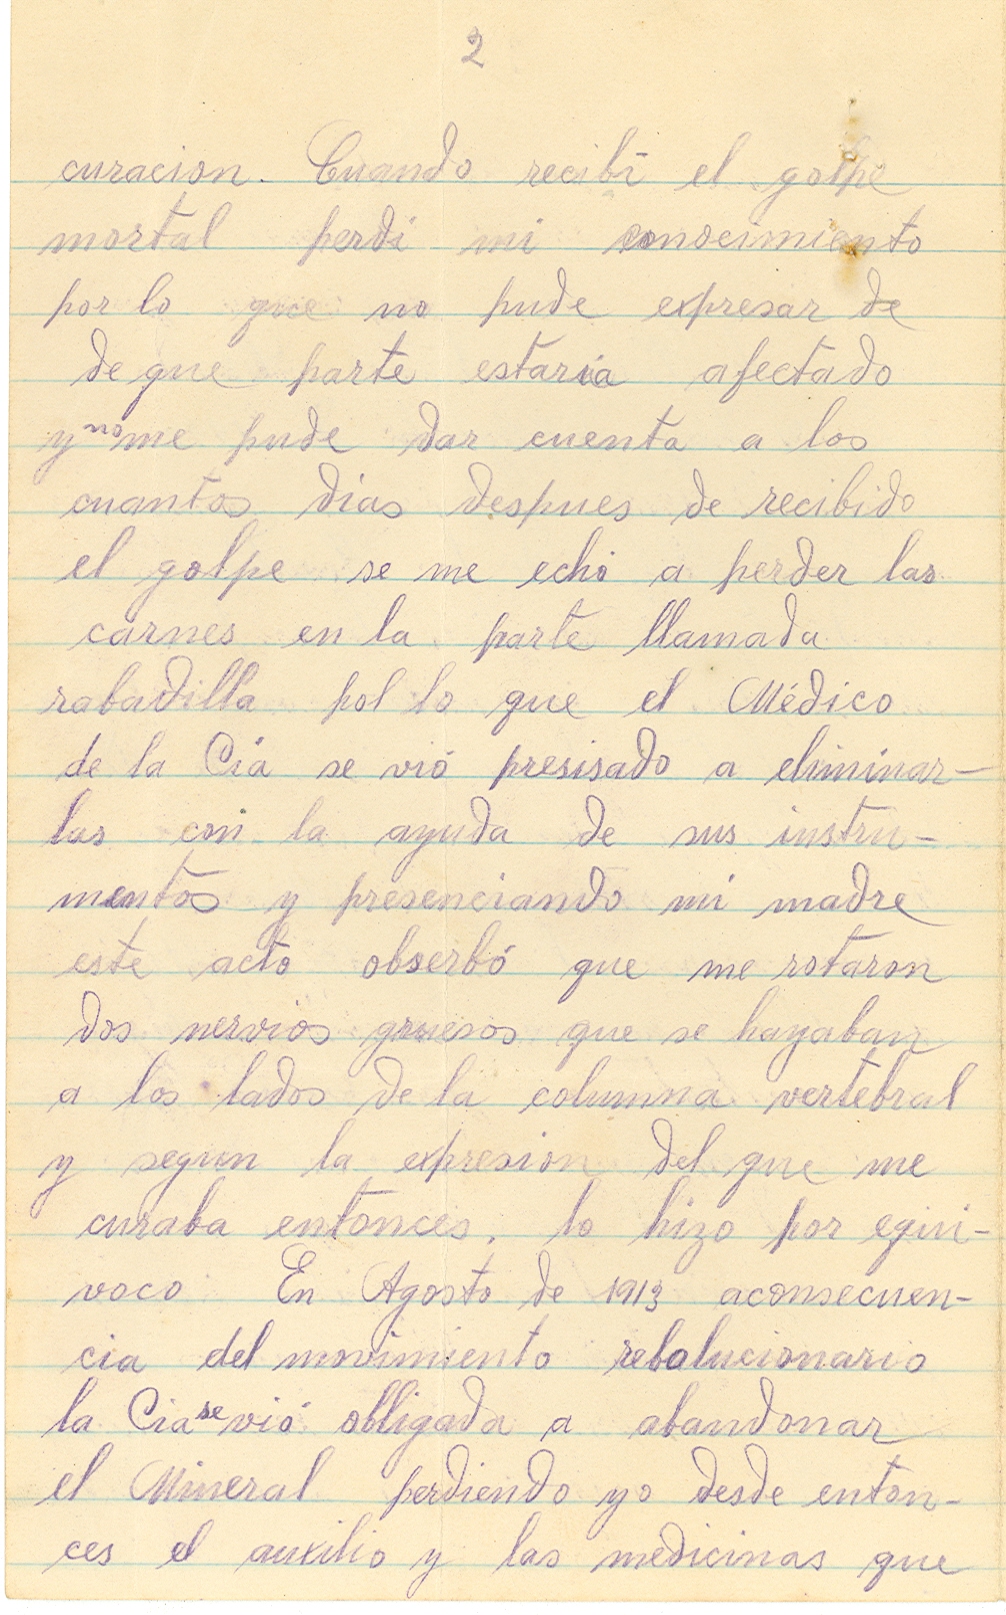 2
curacion. Cuando recibí el golpe
mortal perdí mi conocimiento
por lo que no pude expresar de
de que parte estaría afectado
y no me pude dar cuenta a los
cuantos días despues de recibido
el golpe se me echó a perder las
carnes en la parte llamada
rabadilla pol lo que el Médico
de la Cía se vió presisado a eliminar-
las con la ayuda de sus instru-
mentos y presenciando mi madre
este acto obserbó que me rotaron
dos nervios gruesos que se hayaban
a los lados de la columna vertebral
y segun la expresion del que me
curaba entonces, lo hizo por equi-
voco En Agosto de 1913 aconsecuen-
cia del movimiento rebolucionario
la Cia se vió obligada a abandonar
el Mineral perdiendo yo desde enton-
ces el auxilio y las medicinas que